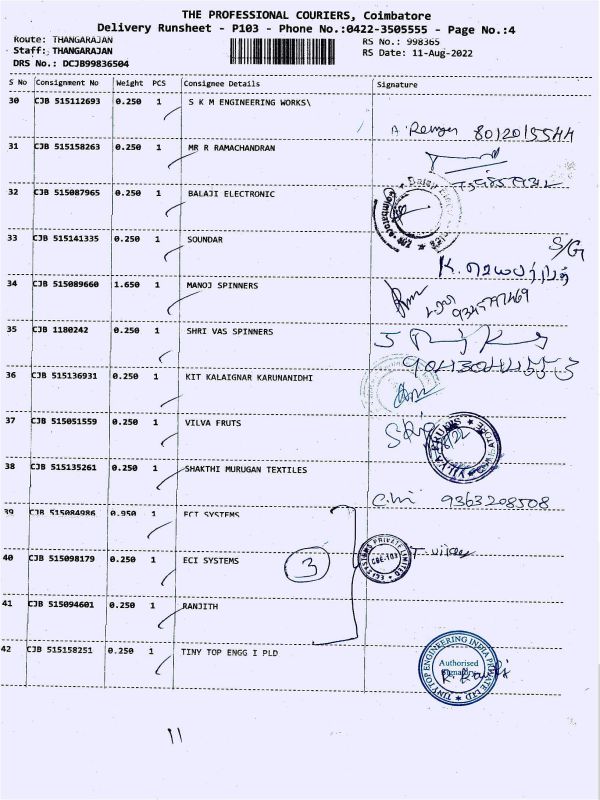 THE PROFESSIONAL COURIERS, Coimbatore
Delivery Runsheet - P103 - Phone No.:0422-3505555 - Page No.:4
Route: THANGARAJAN
RS No.: 998365
Staff: THANGARAJAN
RS Date: 11-Aug-2022
DRS No.: DCJB99836504
S No Consignment No Weight PCS Consignee Details Signature
30 CJB 515112693 0.250 1 S K M ENGINEERING WORKS\
31 CJB 515158263 0.250 1 MR R RAMACHANDRAN
32 CJB 515087965 0.250 1 BALAJI ELECTRONIC
33 CJB 515141335 0.250 1 SOUNDAR
S/G
34 CJB 515089660 1.650 1 MANOJ SPINNERS
35 CJB 1180242 0.250 1 SHRI VAS SPINNERS
36 CJB 515136931 0.250 1 KIT KALAIGNAR KARUNANIDHI
37 CJB 515051559 0.250 1 VILVA FRUTS
38 CJB 515135261 0.250 1 SHAKTHI MURUGAN TEXTILES
9363208508
39 CJB 515084986 0.950 1 ECI SYSTEMS
40 CJB 515098179 0.250 1 ECI SYSTEMS
3
ECI SYSTEMS PRIVATE LIMITED
CBE-103
T. vijay
41 CJB 515094601 0.250 1 RANJITH
42 CJB 515158251 0.250 1 TINY TOP ENGG I PLD
TINY TOP ENGINEERING INDIA PRIVATE LTD
Authorised
Signatory
11